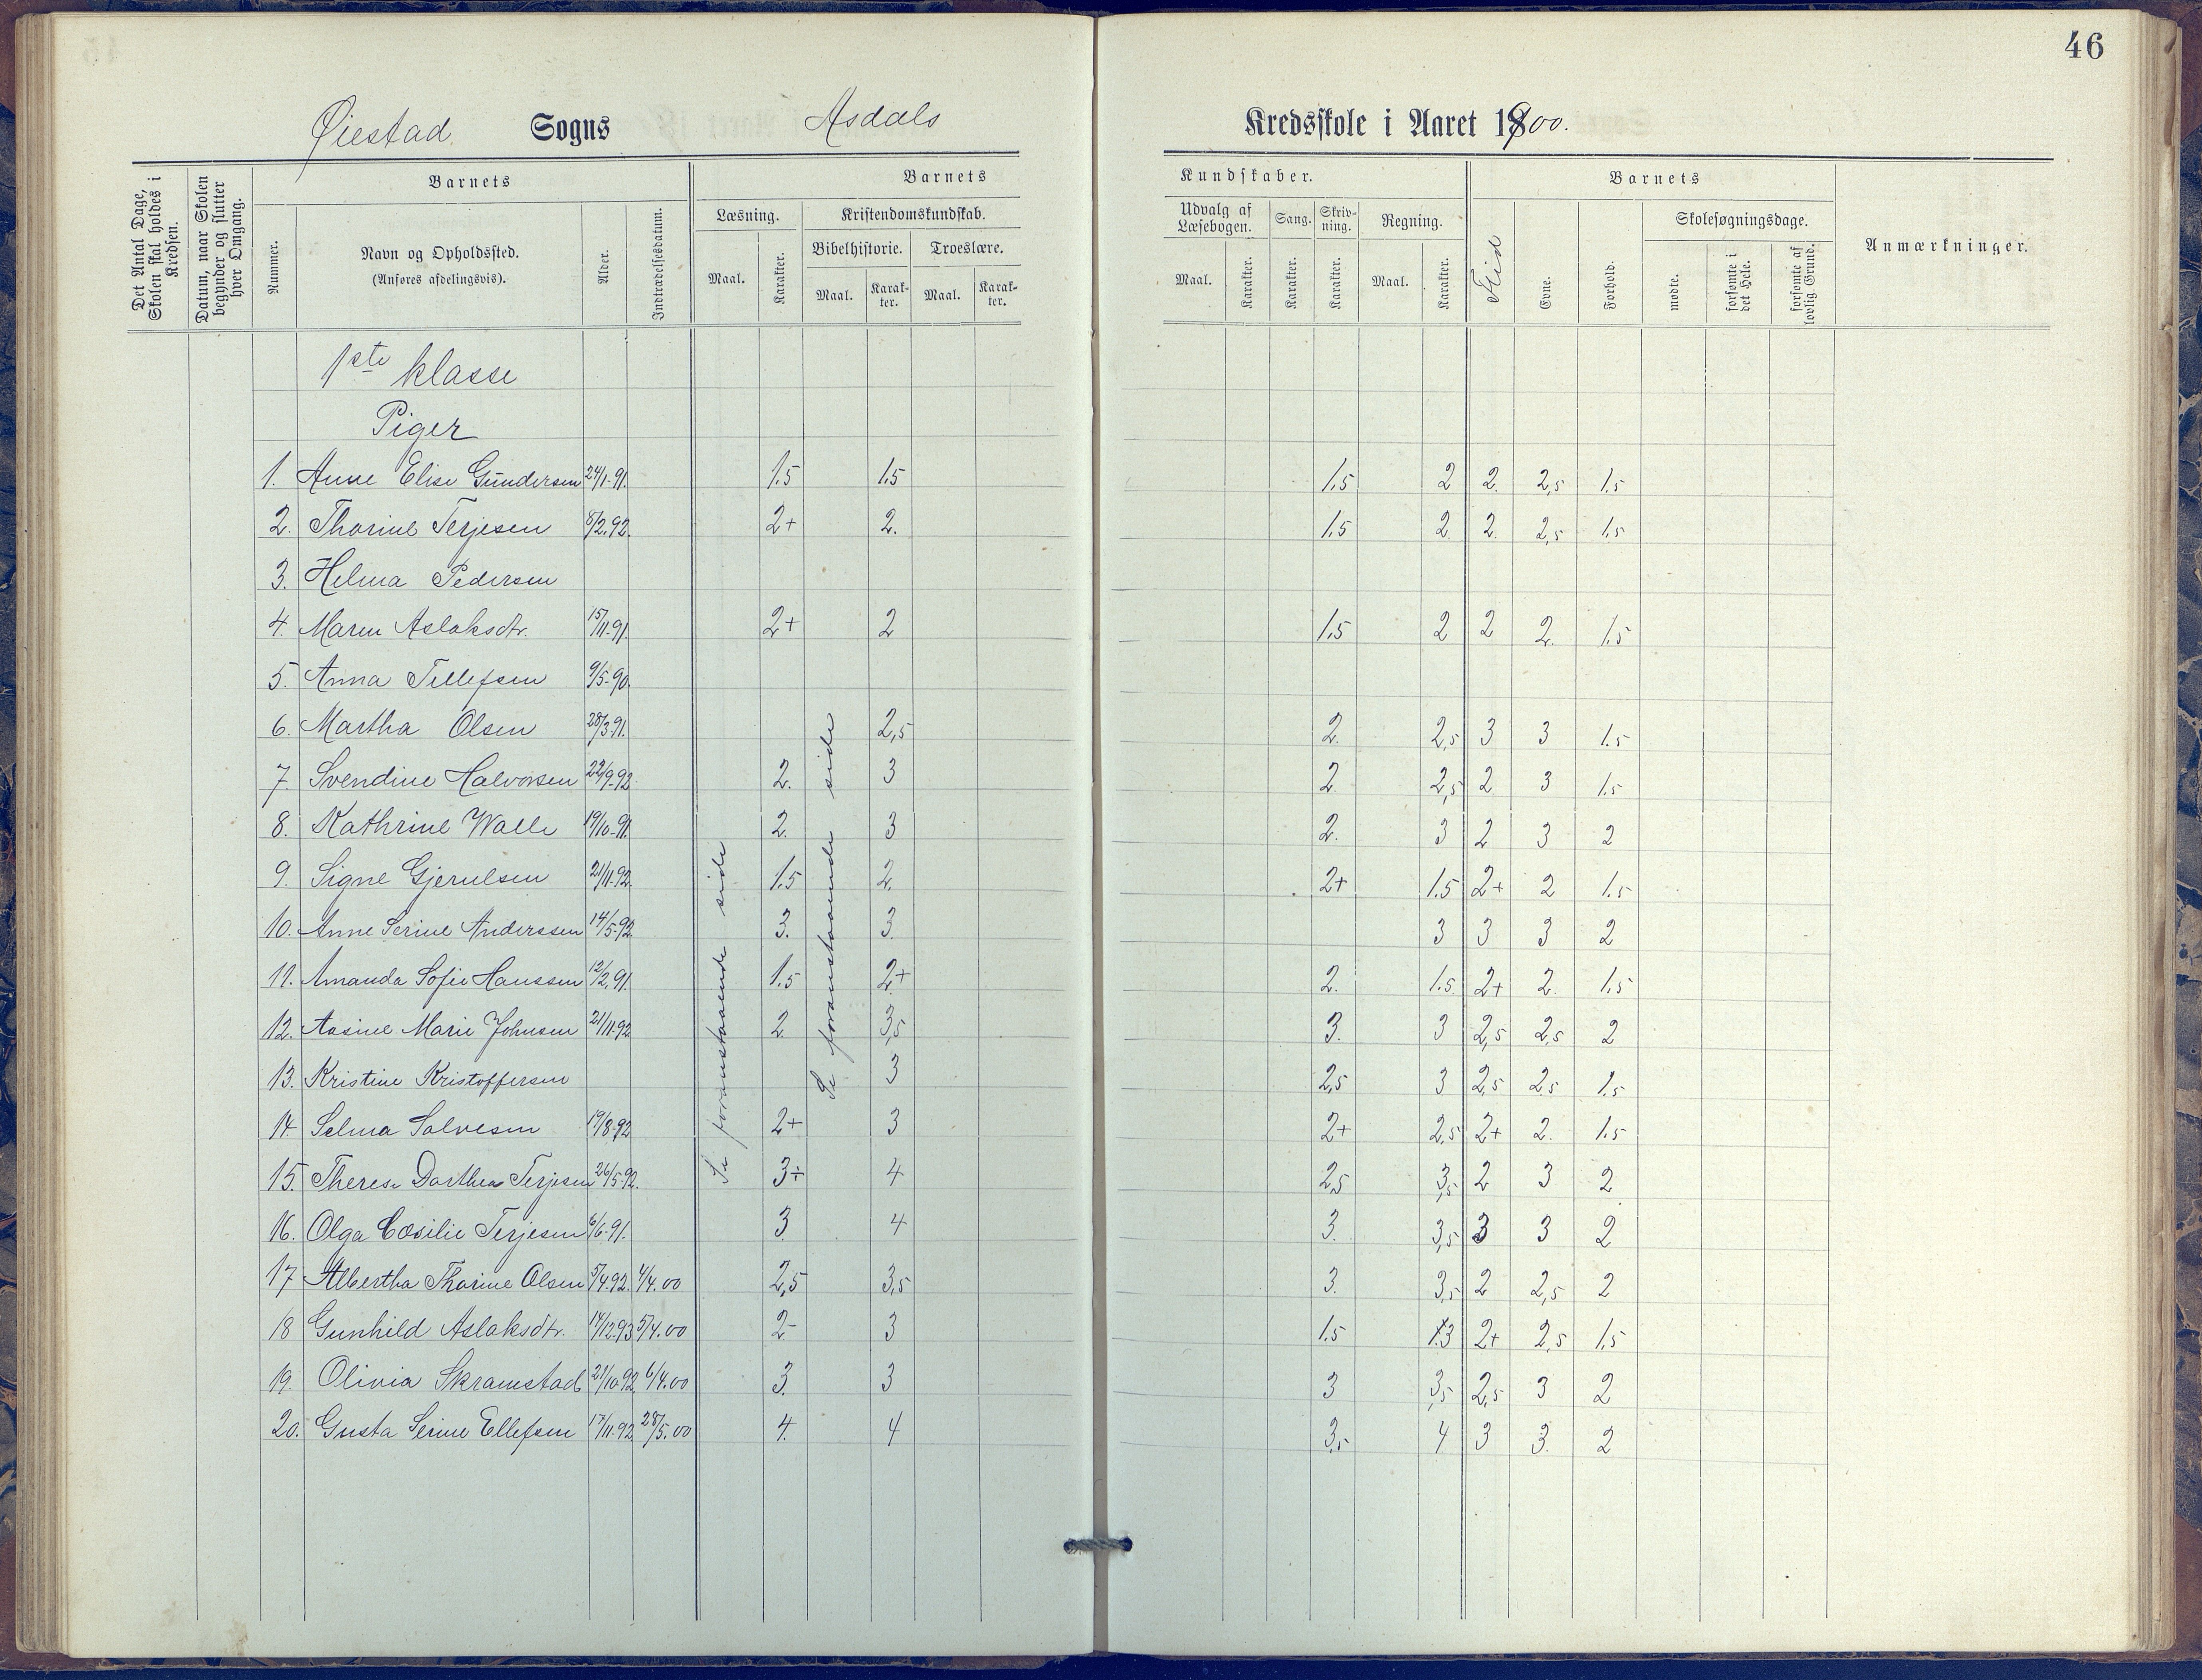 46
Øiestad Sogns Asdals Kredsskole i Aaret 1900.
Det Antal Dage, Skolen skal holdes i Kredsen.
Datum, naar Skolen begynder og slutter hver Omgang.
Barnets
Nummer.
Navn og Opholdssted.
(Anføres afdelingsvis).
Alder.
Indtrædelsesdatum.
Barnets Kundskaber.
Læsning.
Maal.
Karakter.
Kristendomskundskab.
Bibelhistorie.
Maal.
Karakter.
Troeslære.
Maal.
Karakter.
Udvalg af Læsebogen.
Maal.
Karakter.
Sang.
Karakter.
Skrivning.
Karakter.
Regning.
Maal.
Karakter.
Barnets
Flid
Evne.
Forhold.
Skolesøgningsdage.
mødte.
forsømte i det Hele.
forsømte af lovlig Grund.
Anmærkninger.
1ste klasse
Piger
1. Anne Elise Gundersen 24/1-91. 1.5 1.5 1.5 2 2. 2,5 1.5
2. Thorine Terjesen 8/2.92. 2+ 2. 1.5 2. 2. 2,5 1.5
3. Helma Pedersen
4. Maren Aslaksdtr. 15/11.91. 2+ 2 1.5 2 2 2. 1.5
5. Anna Tellefsen 9/5-90.
6. Martha Olsen 28/3.91. 2,5 2. 2,5 3 3 1.5
7. Svendine Halvorsen 22/9-92. 2. 3 2. 2,5 2 3 1.5
8. Kathrine Walle 19/10-91. 2. 3 2. 3 2 3 2
9. Signe Gjerulsen 21/11-92. 1.5 2. 2+ 1.5 2+ 2 1.5
10. Anne Serine Anderssen 14/5-92. 3. 3. 3 3 3 2
11. Amanda Sofie Hanssen 12/2.91. 1.5 2+ 2. 1.5 2+ 2. 1.5
12. Aasine Marie Johnsen 21/11-92 2. 3,5 3. 3 2,5 2,5 2
13. Kristine Kristoffersen 3 2,5 3 2,5 2,5 1.5
14. Selma Salvesen 19/8-92 2+ 3 2+ 2,5 2+ 2. 1.5
15. Therese Dorthea Terjesen 26/5-92. 3÷ 4 2,5 3,5 2 3 2
16. Olga Cæsilie Terjesen 6/6-91. 3 4 3. 3,5 3 3 2
17 Albertha Thorine Olsen 5/4.92. 4/4.00 2,5 3,5 3. 3,5 2 2,5 2
18 Gunhild Aslaksdtr. 14/12.93 5/4.00 2- 3 1.5 3 2+ 2,5 1,5
19. Olivia Skramstad 21/10.92. 6/4.00 3. 3 3 3,5 2,5 3 2
20. Gusta Serine Ellefsen 17/11.92. 28/5.00 4. 4 3,5 4 3 3. 2
Se foranstaaende side
Se foranstaaende side